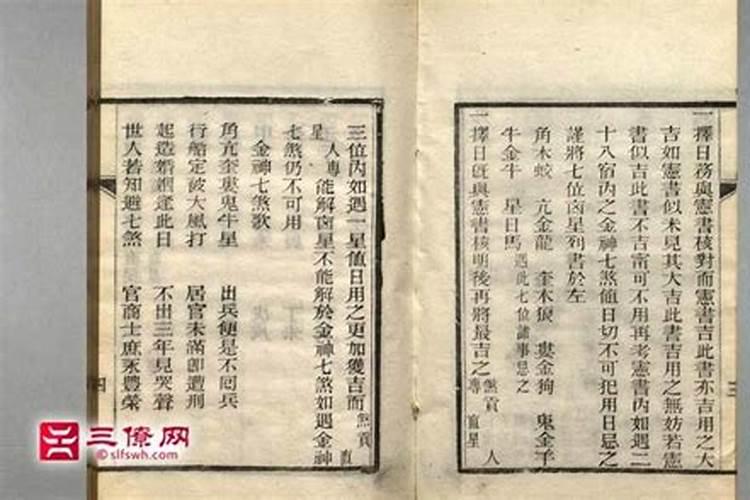 一擇日務與憲書核對而憲書吉此書亦吉用之大
吉如憲書似未見其大吉此書吉用之無妨若憲
書似吉此書不吉甯可不用再考憲書內如遇二
十八宿內之金神七煞値日切不可犯用日忌之
謹將七位凶星列書於左
角木蛟 亢金龍 奎木狼 婁金狗 鬼金羊
牛金牛 星日馬 遇此七位諸事忌之
一擇日旣與憲書核明後再將最吉之 煞貢 專 直星 人
三位內如遇一星値日用之更加獲吉而 煞貢 直
星 人專 能解凶星不能解於金神七煞如遇金神
七煞仍不可用
金神七煞歌
角亢奎婁鬼牛星 出兵便是不回兵
行船定被大風打 居官未滿卽遭刑
起造婚姻逢此日 不出三年見哭聲
世人若知避七煞 官商士庶永豐榮
三
四
三僚网
©slfswh.com